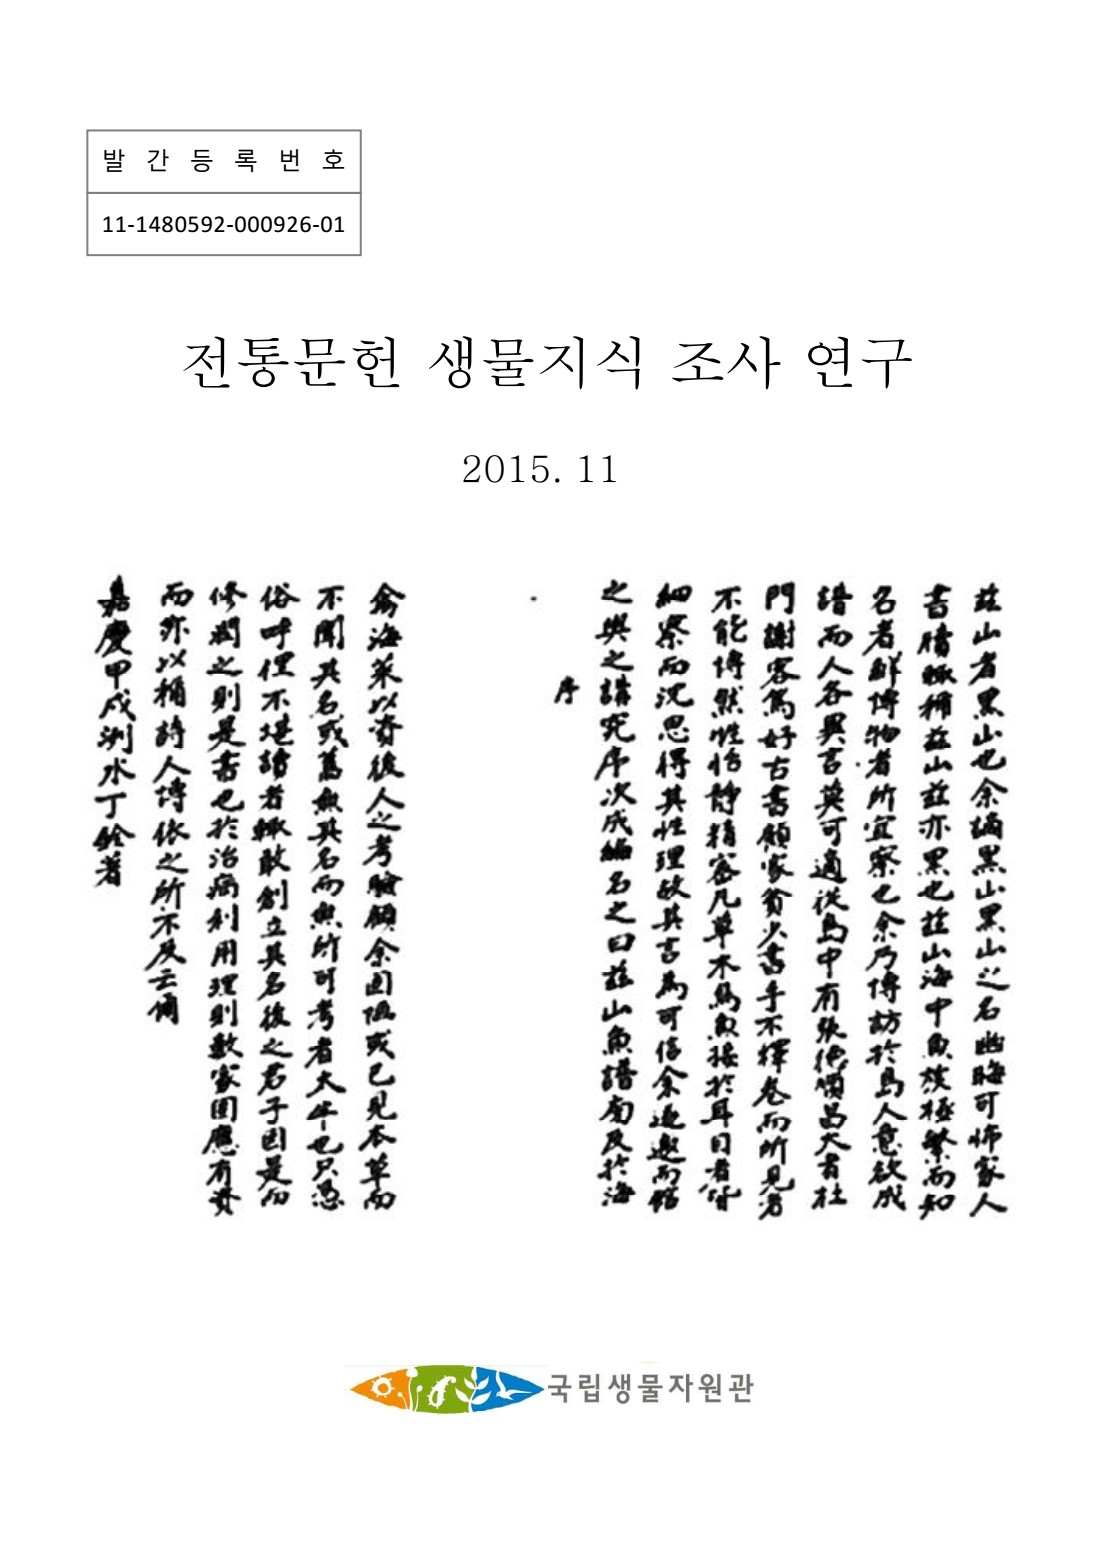 발 간 등 록 번 호
11-1480592-000926-01
전통문헌 생물지식 조사 연구
2015. 11
玆山者黑山也余謫黑山黑山之名幽晦可怖家人
書牘輒稱玆山玆亦黑也玆山海中魚族極繁而知
名者鮮博物者所宜察也余乃博訪於島人意欲成
譜而人各異言莫可適從島中有張德順昌大者杜
門謝客篤好古書顧家貧少書手不釋卷而所見者
不能博然性恬靜精密凡草木鳥魚接於耳目者皆
細察而沈思得其性理故其言爲可信余遂邀而館
之與之講究序次成編名之曰玆山魚譜旁及於海
序
禽海菜以資後人之考驗顧余固陋或已見本草而
不聞其名或舊無其名而無所可考者太半也只憑
俗呼俚不堪讀者輒敢創立其名後之君子因是而
修潤之則是書也於治病利用理則數家固應有資
而亦以補詩人博依之所不及云爾
嘉慶甲戌洌水丁銓著
국립생물자원관